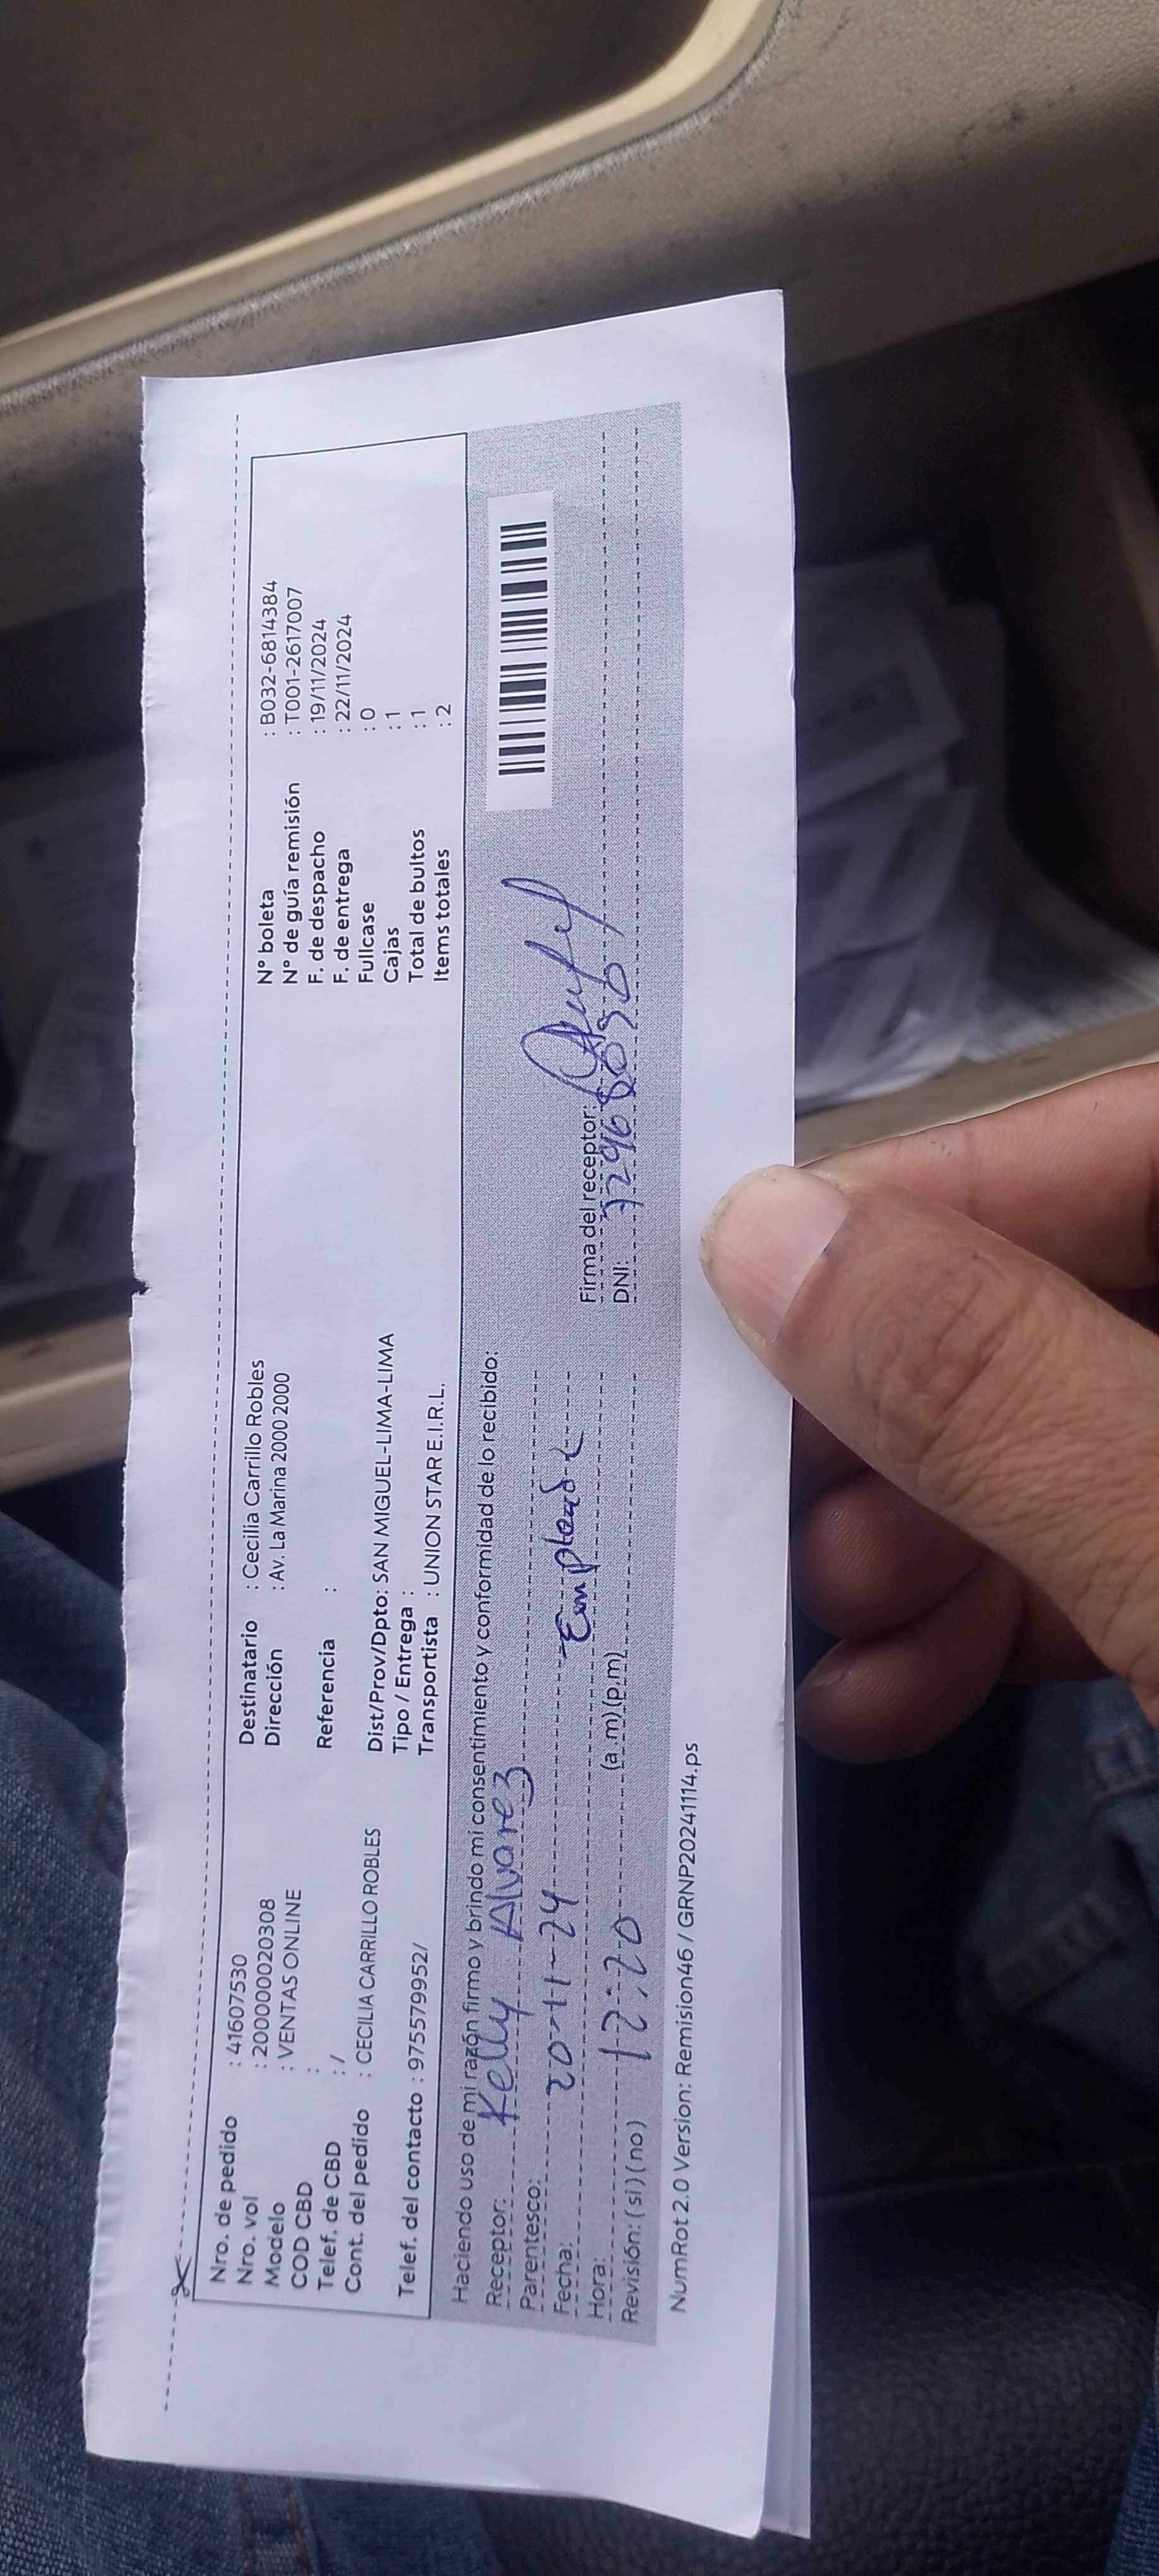 Nro. de pedido : 41607530
Nro. vol : 2000000020308
Modelo : VENTAS ONLINE
COD CBD :
Telef. de CBD : /
Cont. del pedido : CECILIA CARRILLO ROBLES
Telef. del contacto : 975579952/
Destinatario : Cecilia Carrillo Robles
Dirección : Av. La Marina 2000 2000
Referencia :
Dist/Prov/Dpto: SAN MIGUEL-LIMA-LIMA
Tipo / Entrega :
Transportista : UNION STAR E.I.R.L.
N° boleta : B032-6814384
N° de guía remisión : T001-2617007
F. de despacho : 19/11/2024
F. de entrega : 22/11/2024
Fullcase : 0
Cajas : 1
Total de bultos : 1
Items totales : 2
Haciendo uso de mi razón firmo y brindo mi consentimiento y conformidad de lo recibido:
Receptor: Kelly Alvarez
Parentesco: Empleada
Fecha: 20-11-24
Hora: 12:20 (a.m) (p.m)
Revisión: (si) (no)
Firma del receptor:
DNI:
NumRot 2.0 Version: Remision46 / GRNP20241114.ps